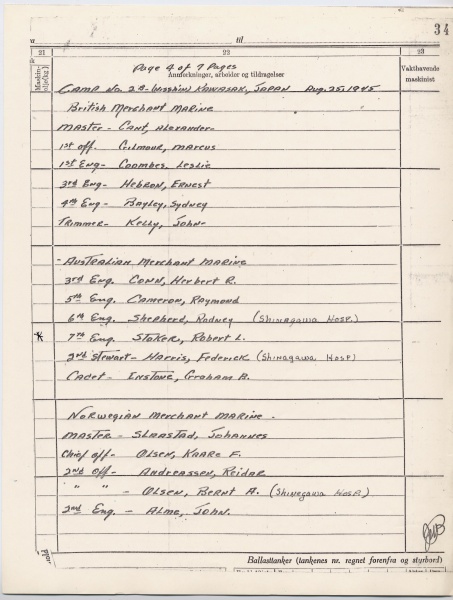 34
til
21 22 23
Maskin-
olje(kg)
Page 4 of 7 Pages
Anmerkninger, arbeider og tildragelser
Vakthavende
maskinist
Camp No. 2B- Kawasaki, Japan Aug. 25, 1945
British Merchant Marine
Master - Cant, Alexander
1st Off. Gilmour, Marcus
1st Eng - Coombes, Leslie
3rd Eng - Hebron, Ernest
4th Eng - Bayley, Sydney
Trimmer - Kelly, John
- Australian Merchant Marine
3rd Eng. Conn, Herbert R.
5th Eng. Cameron, Raymond
6th Eng. Shepherd, Rodney (Shinagawa Hosp.)
* 7th Eng. Stoker, Robert L.
2nd Stewart - Harris, Federick (Shinagawa Hosp)
Cadet - Enstone, Graham B.
Norwegian Merchant Marine -
Master - Slaastad, Johannes
Chief Off - Olsen, Kaare F.
2nd Off - Andreassen, Reidar
" " - Olsen, Bernt A. (Shinegawa Hosp)
2nd Eng. - Alme, John.
Ballasttanker (tankenes nr. regnet forenfra og styrbord)